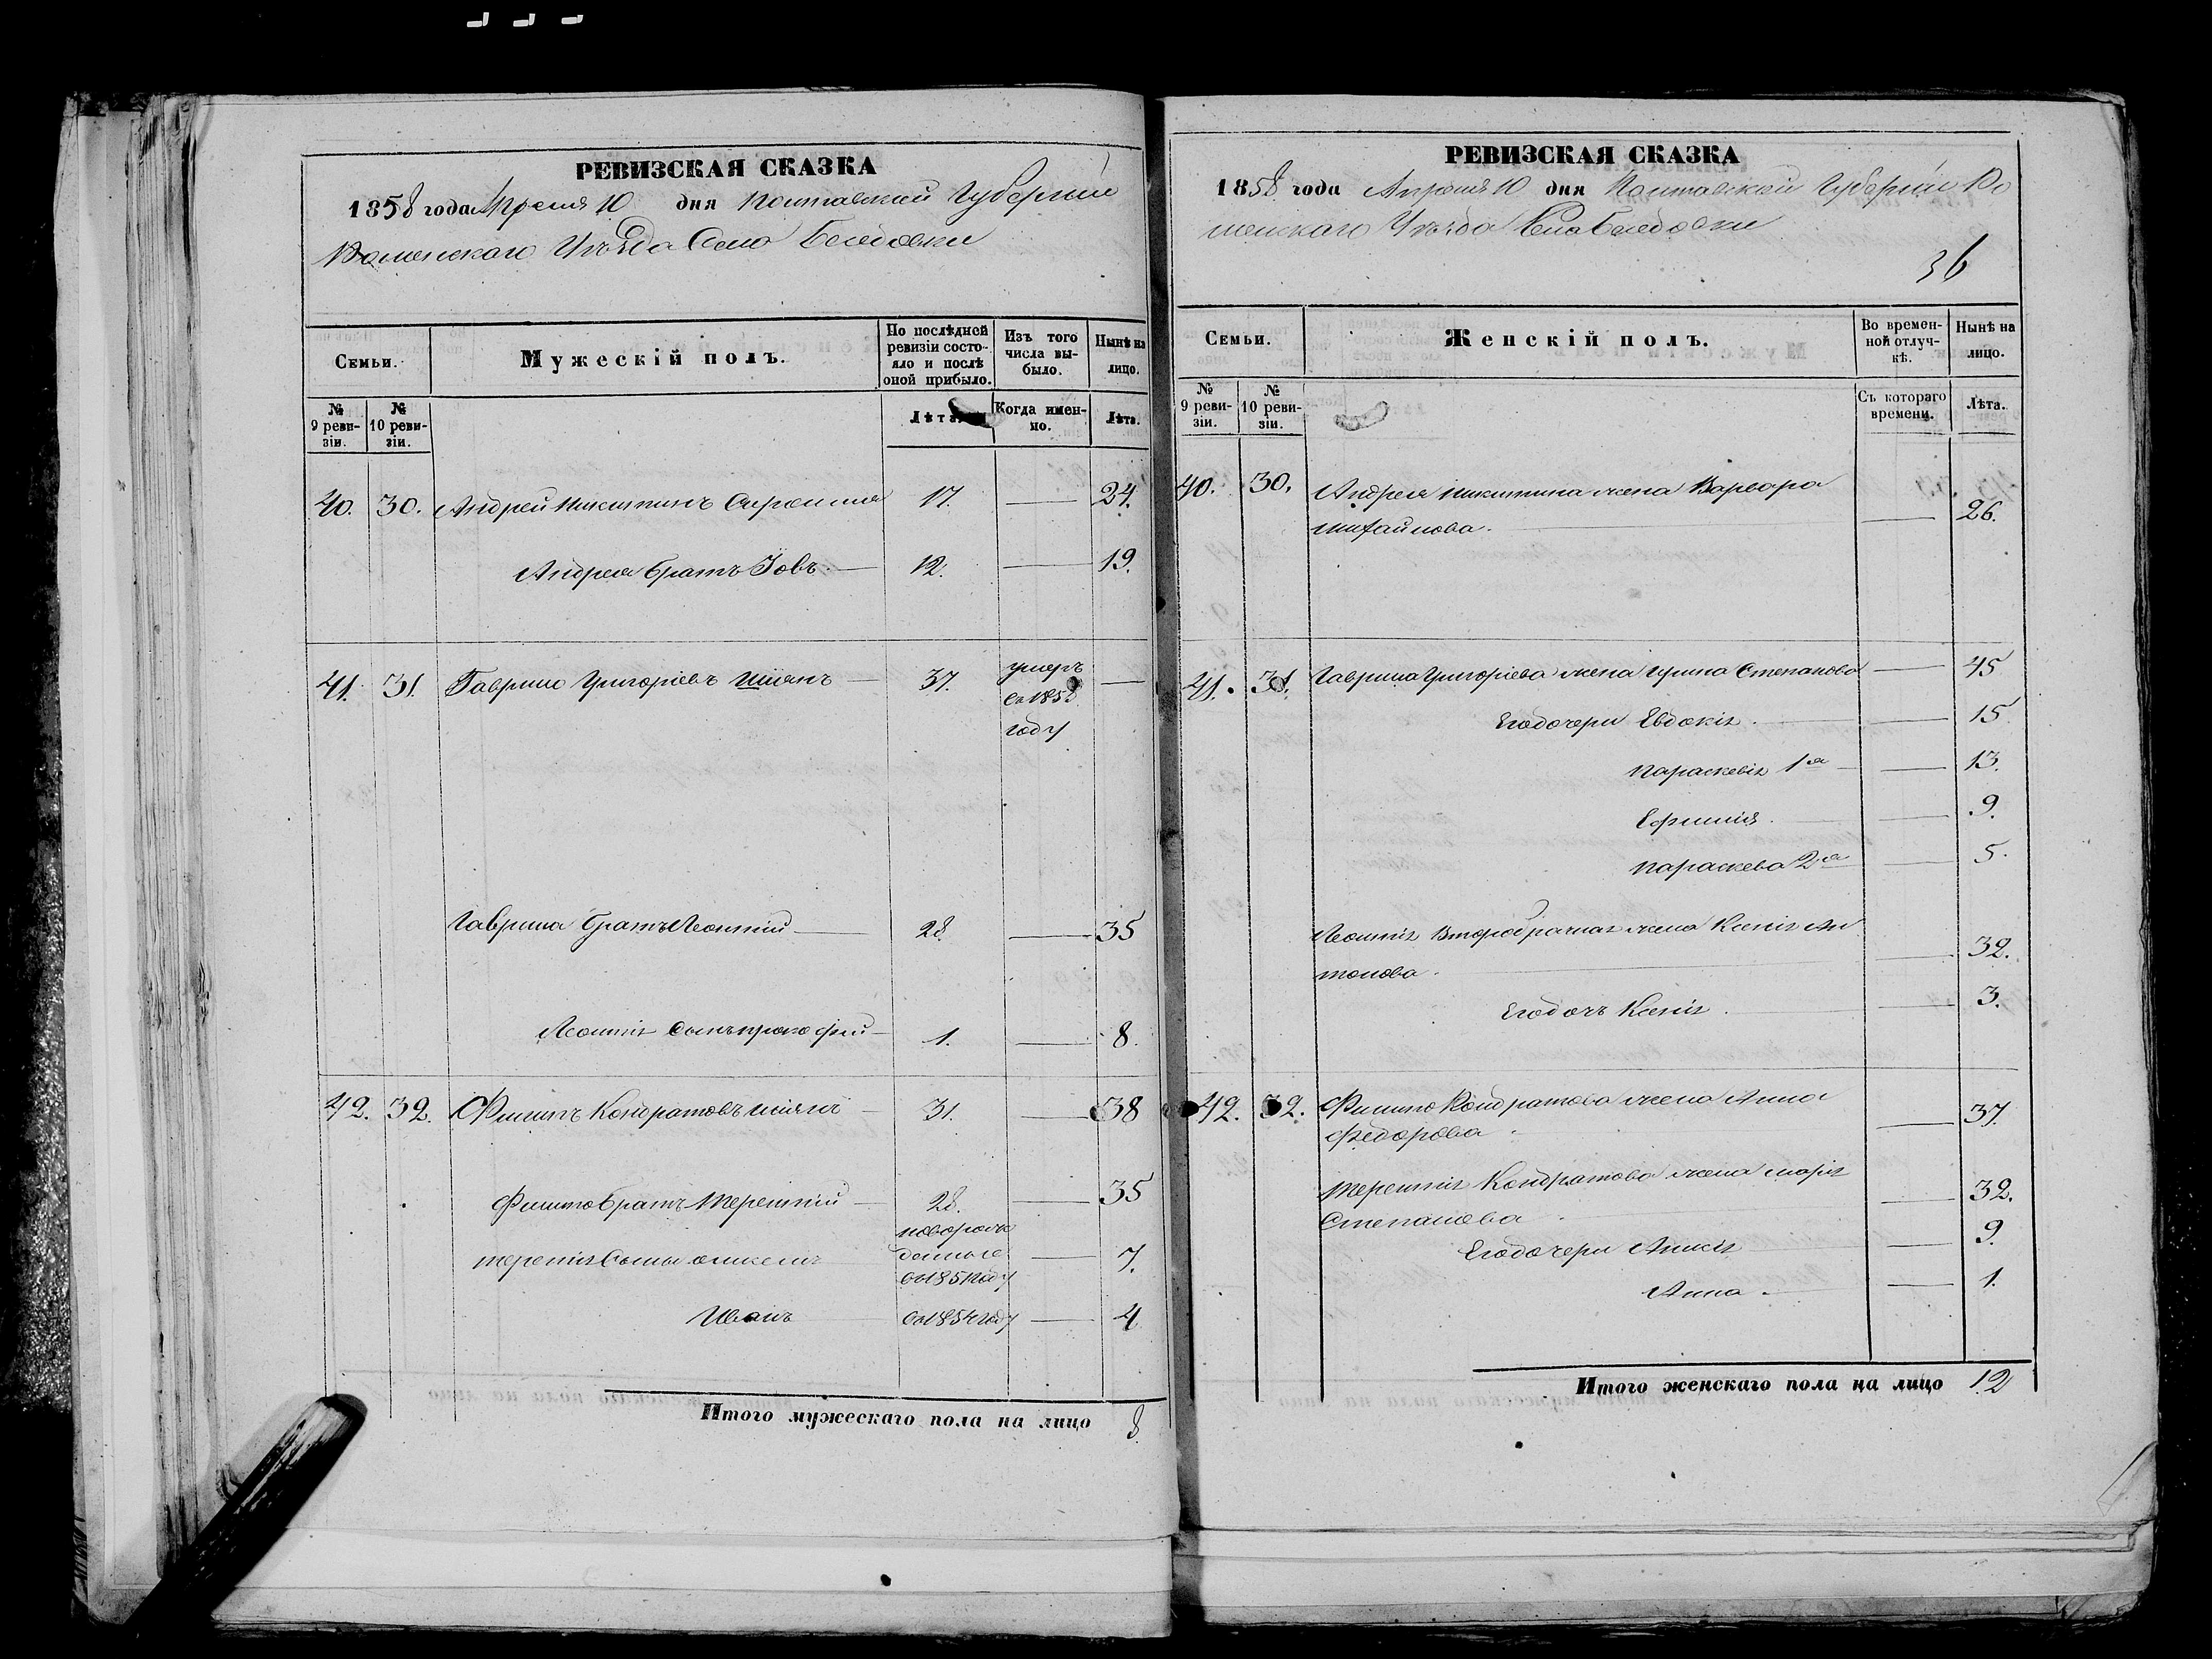 РЕВИЗСКАЯ СКАЗКА
1858 года Апреля 10 дня Полтавской Губернии
Роменскаго Уезда Село Беседовки
Семьи.
Мужескій полъ.
По послѣдней ревизіи состояло и послѣ оной прибыло.
Изъ того числа выбыло.
Нынѣ на лицо.
№ 9 ревизіи.
№ 10 ревизіи.
Лѣта.
Когда именно.
Лѣта.
40. 30. Андрей Никитинъ 17. — 24.
Андрея братъ Іовъ — 12. — 19.
41. 31. Гаврило Григоріевъ Шіянъ — 37. умеръ —
въ 1852
году
Гаврила братъ Леонтій — 28. — 35
Леонтія сынъ Прокофій — 1. — 8.
42. 32. Филипъ Кондратовъ Шіянъ — 31. — 38
Филипа братъ Терентій — 28. — 35
новорож
денные
Терентія сыны — 7.
въ 1851 году
Иванъ въ 1854 году — 4
Итого мужескаго пола на лицо 8.
РЕВИЗСКАЯ СКАЗКА
1858 года Апреля 10 дня Полтавской Губернии Ро
менскаго Уезда Села Беседовки
36
Семьи.
Женскій полъ.
Во временной отлучкѣ.
Нынѣ на лицо.
№ 9 ревизіи.
№ 10 ревизіи.
Съ котораго времени.
Лѣта.
40. 30. Андрея Никитина жена Варвара
Михайлова. — 26.
41. 31. Гаврила Григоріева жена Ирина Степанова — 45
Его дочери Евдокія. — 15.
Параскевія 1я — 13.
Ефимія. — 9.
Параскева 2я — 5.
Леонтія второбрачная жена Ксенія Ан
тонова. — 32.
Его дочь Ксенія. — 3.
42. 32. Филипа Кондратова жена Анна
Федорова. — 37.
Терентія Кондратова жена Марія
Степанова. — 32.
Его дочери — 9.
Анна. — 1.
Итого женскаго пола на лицо 12